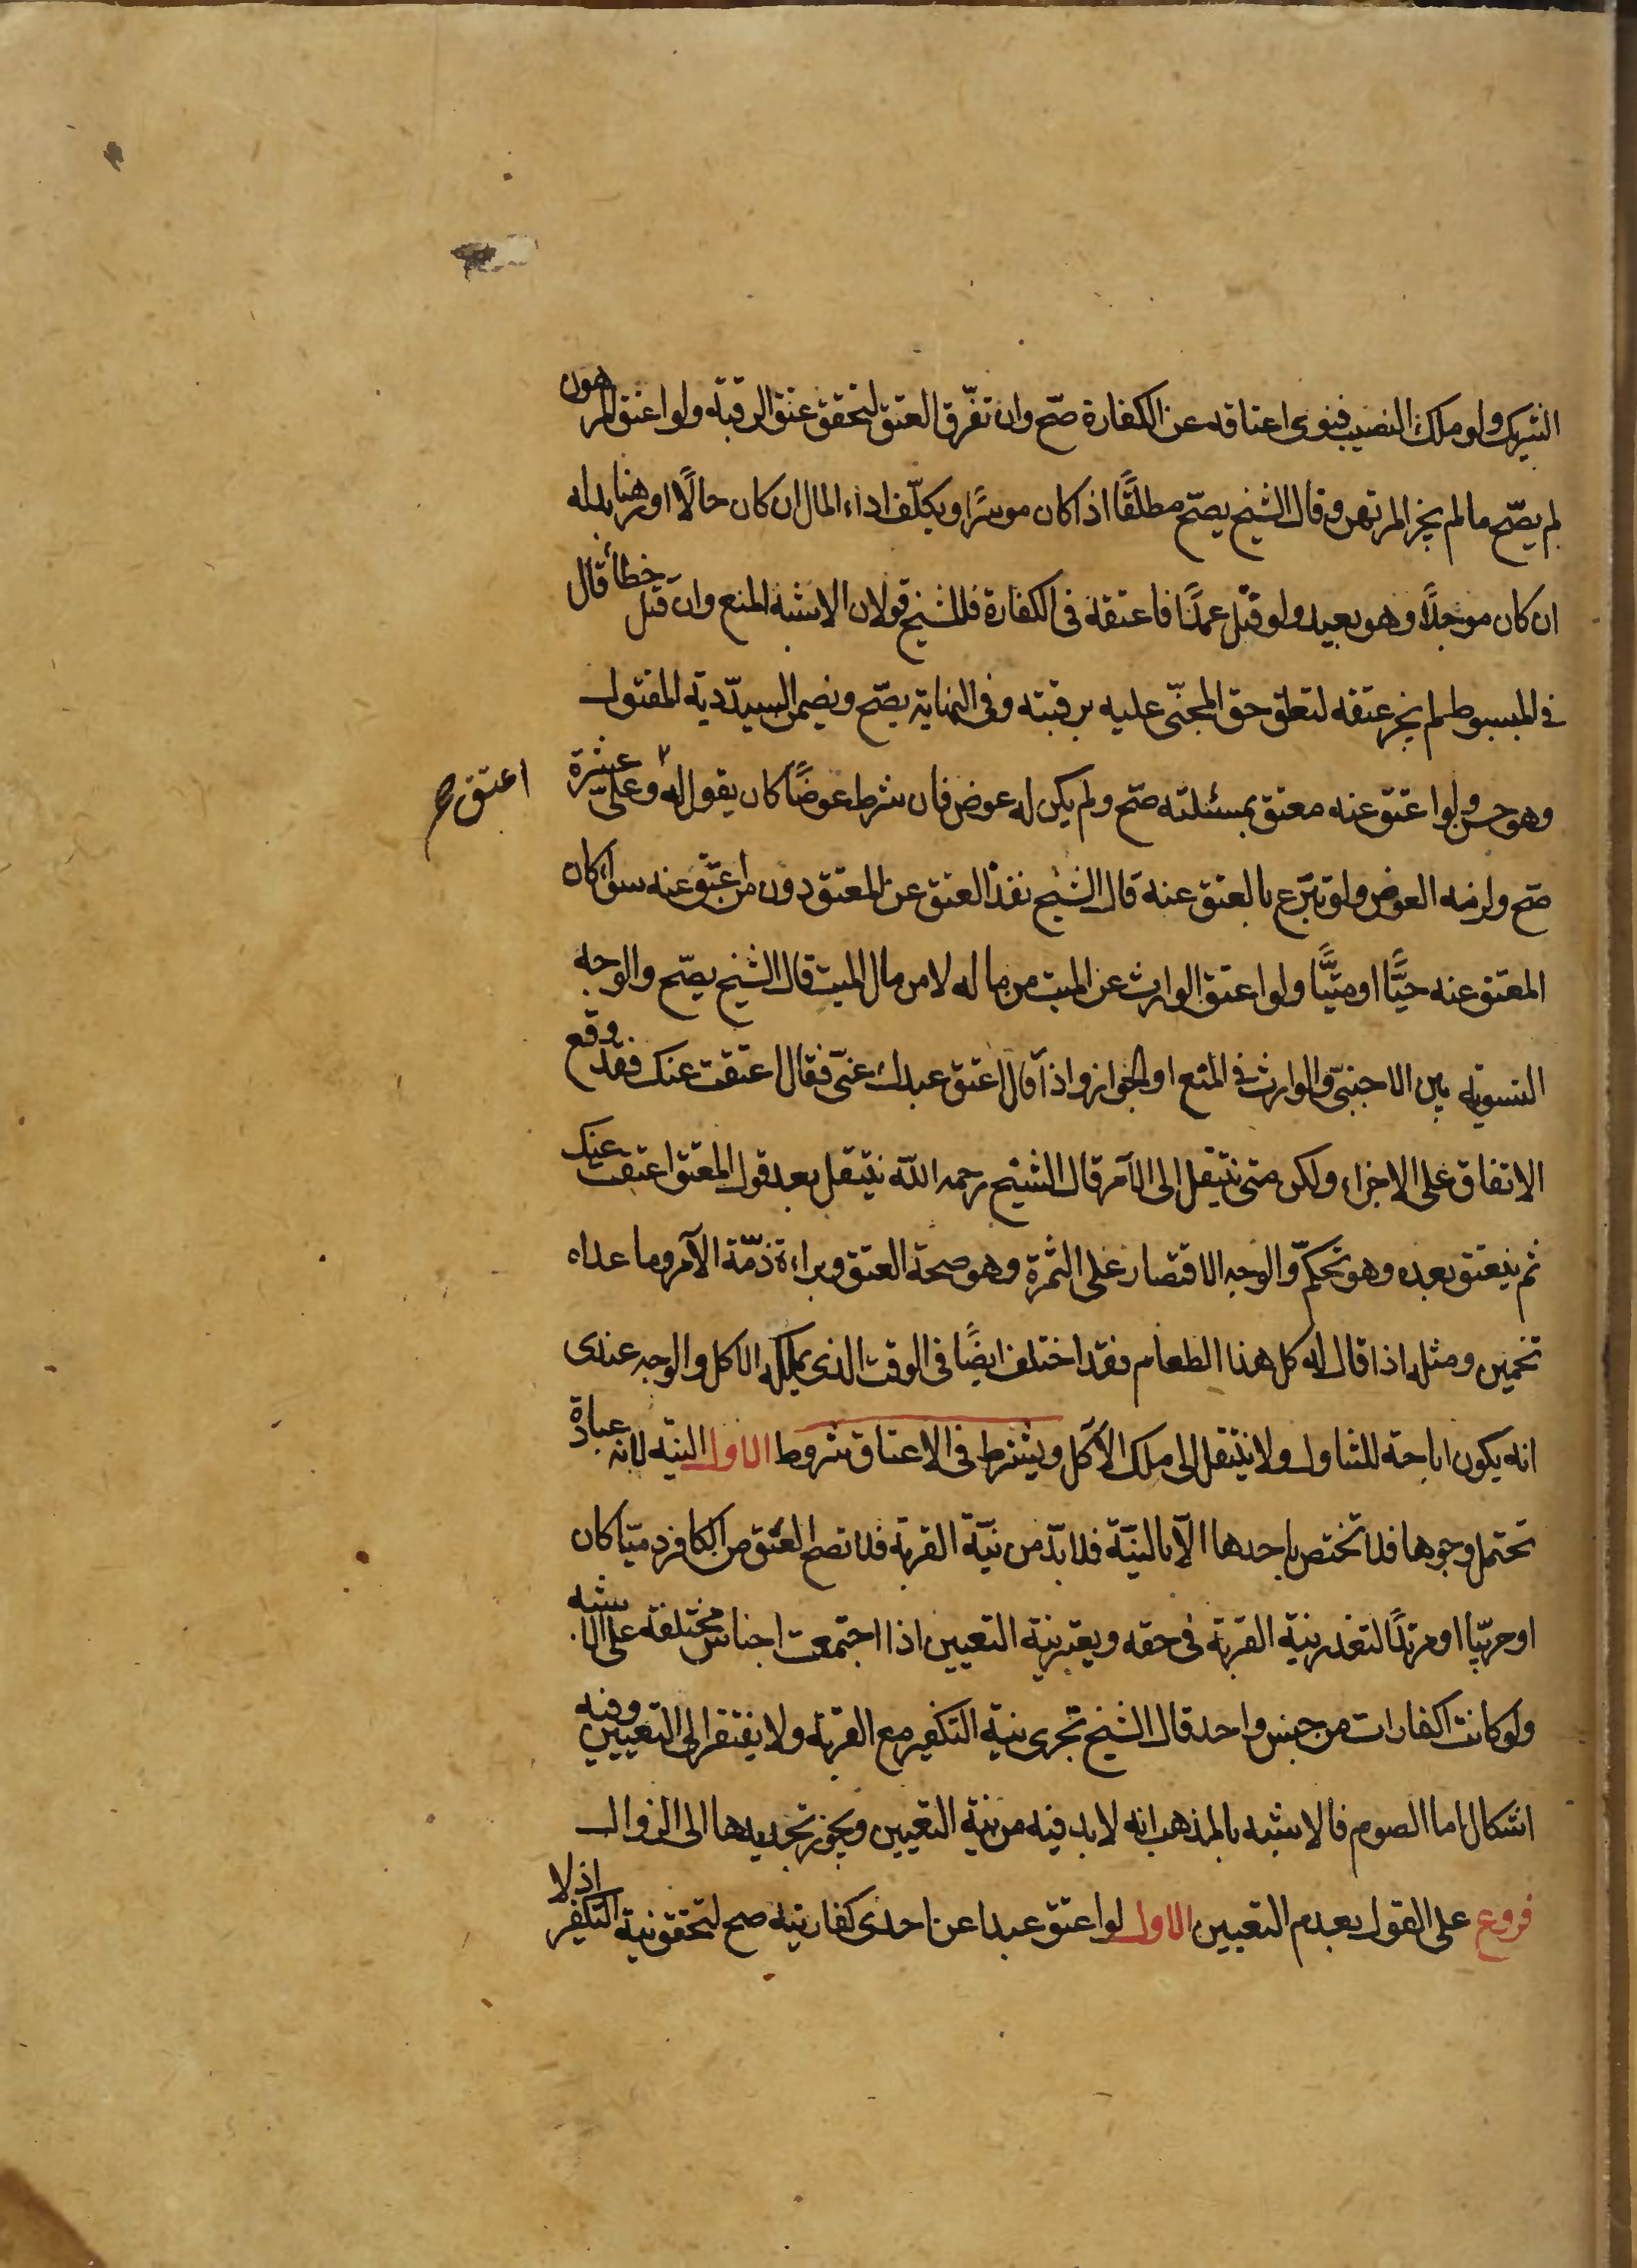 الشريك ولو ملك النصيب فنوى اعتاقه عن الكفارة صحّ وان تفرّق العتق لتحقق عتق الرقبة ولو اعتق المرهون
لم يصّح ما لم يجز المرتهن وقال الشيخ يصحّ مطلقًا اذا كان موسرًا ويكلّف اداء المال ان كان حالًا او رهنا بدله
ان كان موجلًا وهو بعيد ولو قتل عمدًا فاعتقه فى الكفارة فللشيخ قولان الاشبه المنع وان قتل خطأ قال
فى المبسوط لم يجز عتقه لتعلق حق المجنّى عليه برقبته وفى النهاية يصّح ويضمن السيدّ دية المقتول
وهو حسن ولو اعتق عنه معتق بمسئلته صحّ ولم يكن له عوض فان شرط عوضًا كان يقول له وعلىّ عشرة
اعتق صح
صح ولزمه العوض ولو تبرّع بالعتق عنه قال الشيخ نفذ العتق عن المعتق دون من اعتق عنه سواء كان
المعتق عنه حيًّا او ميّتًا ولو اعتق الوارث عن الميت من ماله لا من مال الميت قال الشيخ يصّح والوجه
التسوية بين الاجنبىّ والوارث فى المنع او الجواز واذا قال اعتق عبدك عنّى فقال اعتقت عنك فقد وقع
الاتفاق على الاجزاء ولكن متى ينتقل الى الآمر قال الشيخ رحمه الله ينتقل بعد قول المعتق اعتقت عنك
ثم ينعتق بعده وهو تحكمّ والوجه الاقتصار على الثمرة وهو صحة العتق وبراءة ذمّة الآمر وما عداه
تخمين ومثله اذا قال له كل هذا الطعام فقد اختلف ايضًا فى الوقت الذى يملكه الاكل والوجه عندى
انه يكون اباحة للتناول ولا ينتقل الى ملك الآكل ويشترط فى الاعتاق شروط الاول النية لانه عبادة
تحتمل وجوها فلا تختص باحدها الّا بالنيّة فلا بدّ من نيّة القربة فلا تصح العتق من الكافر ذميّا كان
او حربيّا او مرتدًا لتعذر نية القربة فى حقه ويعتبر نية التعيين اذا اجتمعت اجناس مختلفة على الاشبه
ولو كانت الكفارات من جنس واحد قال الشيخ تجزى نية التكفير مع القربة ولا يفتقر الى التعيين وفيه
اشكال اما الصوم فالاشبه بالمذهب انه لا بد فيه من نية التعيين ويجوز تجديدها الى الزوال
فروع على القول بعدم التعيين الاول لو اعتق عبدا عن احدى كفارتيه صح لتحقق نية التكفير اذ لا